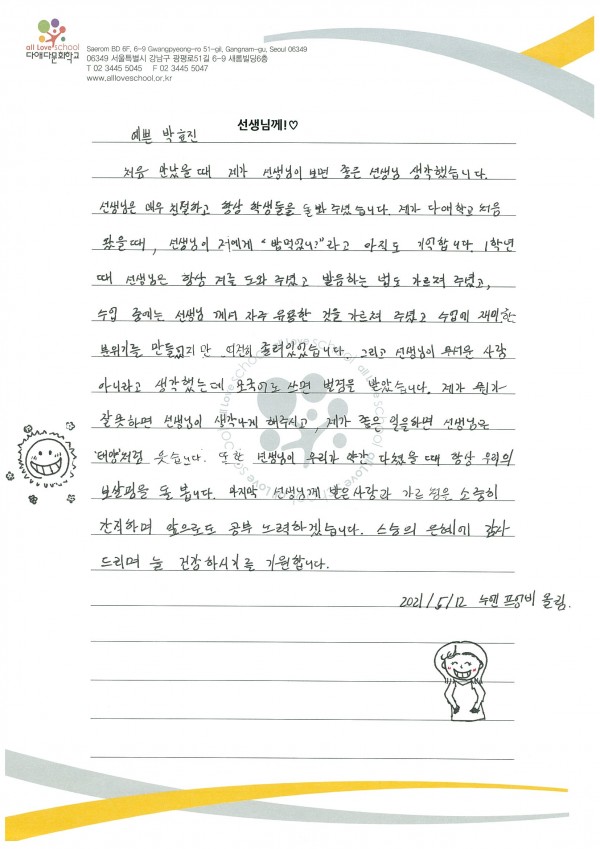 all Love school
다애다문화학교
Saerom BD 6F, 6-9 Gwangpyeong-ro 51-gil, Gangnam-gu, Seoul 06349
06349 서울특별시 강남구 광평로51길 6-9 새롬빌딩6층
T 02 3445 5045 F 02 3445 5047
www.alloveschool.or.kr
예쁜 박효진 선생님께!♡
처음 만났을 때 제가 선생님이 보면 좋은 선생님 생각했습니다.
선생님은 매우 친절하고 항상 학생들을 돌봐 주셨습니다. 제가 다애학교 처음
왔을때, 선생님이 저에게 "밥먹었니?"라고 아직도 기억합니다. 1학년
때 선생님은 항상 저를 도와 주셨고 발음하는 법도 가르쳐 주셨고,
수업 중에는 선생님 께서 자주 유용한 것을 가르쳐 주셨고 수업에 재미한
분위기를 만들었지만 여전히 졸려있었습니다. 그리고 선생님이 무서운 사람
아니라고 생각했는데 모국어도 쓰면 벌점을 받았습니다. 제가 뭔가
잘못하면 선생님이 생각나게 해주시고, 제가 좋은 일을하면 선생님은
'태양'처럼 웃습니다. 또한 선생님이 우리가 약간 다쳤을 때 항상 우리의
보살핌을 돌 봅니다. 마지막 선생님께 받은사랑과 가르침은 소중히
간직하며 앞으로도 공부 노력하겠습니다. 스승의 은혜에 감사
드리며 늘 건강하시기를 기원합니다.
2021/5/12 누엔 프엉비 올림.